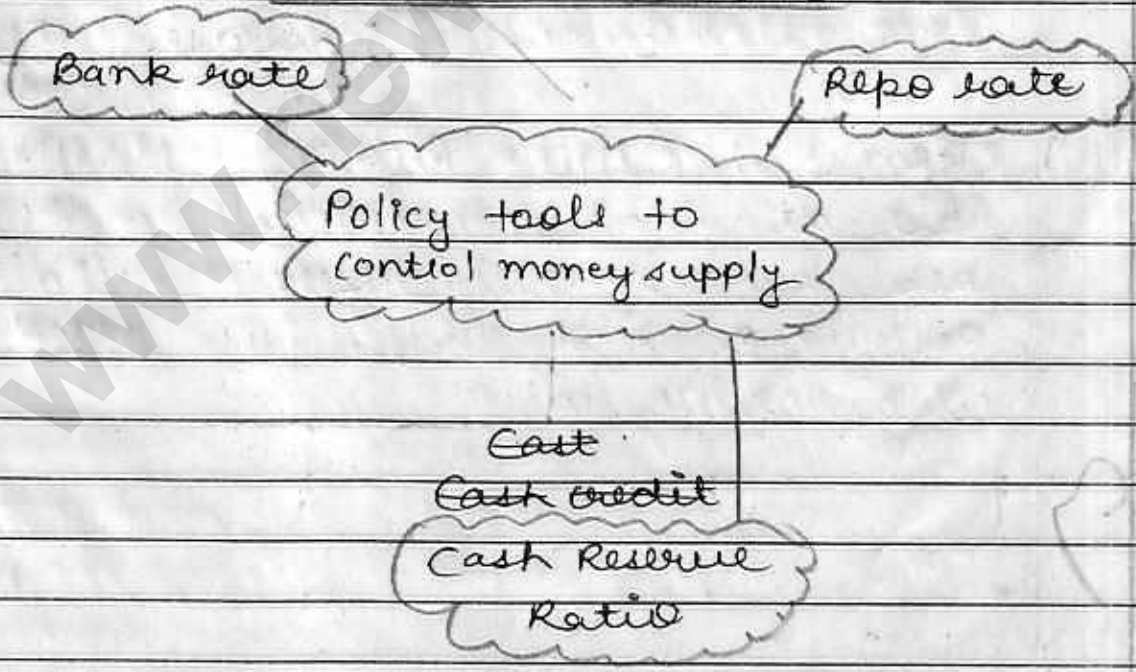 Bank rate
Repo rate
Policy tools to
control money supply
Cast
Cash credit
Cash Reserve
Ratio
www.new